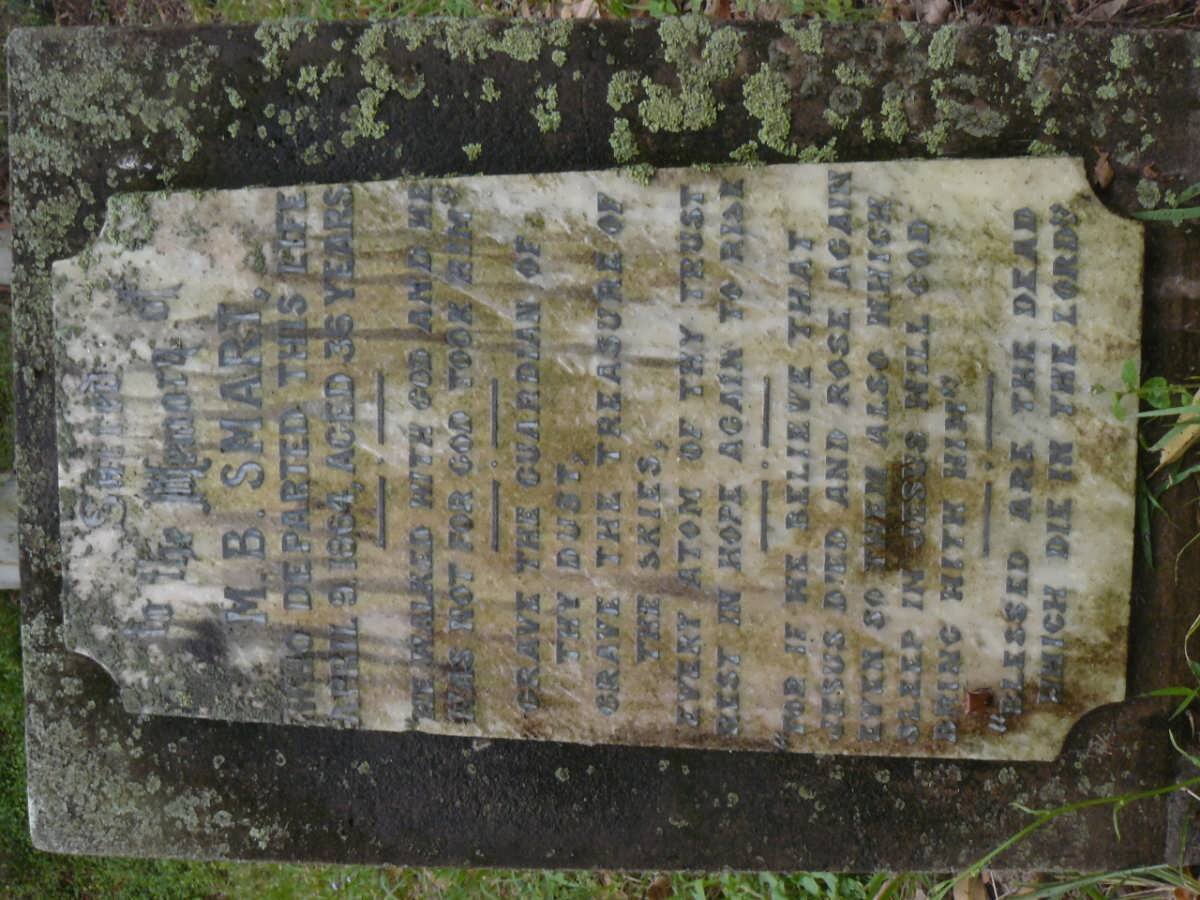 Sacred
to the Memory of
M. B. SMART,
WHO DEPARTED THIS LIFE
APRIL 9. 1864, AGED 36 YEARS
HE WALKED WITH GOD AND HE
WAS NOT FOR GOD TOOK HIM.
GRAVE THE GUARDIAN OF
THY DUST,
GRAVE THE TREASURE OF
THE SKIES,
EVERY ATOM OF THY TRUST
REST IN HOPE AGAIN TO RISE
"FOR IF WE BELIEVE THAT
JESUS DIED AND ROSE AGAIN
EVEN SO THEM ALSO WHICH
SLEEP IN JESUS WILL GOD
BRING WITH HIM"
"BLESSED ARE THE DEAD
WHICH DIE IN THE LORD"